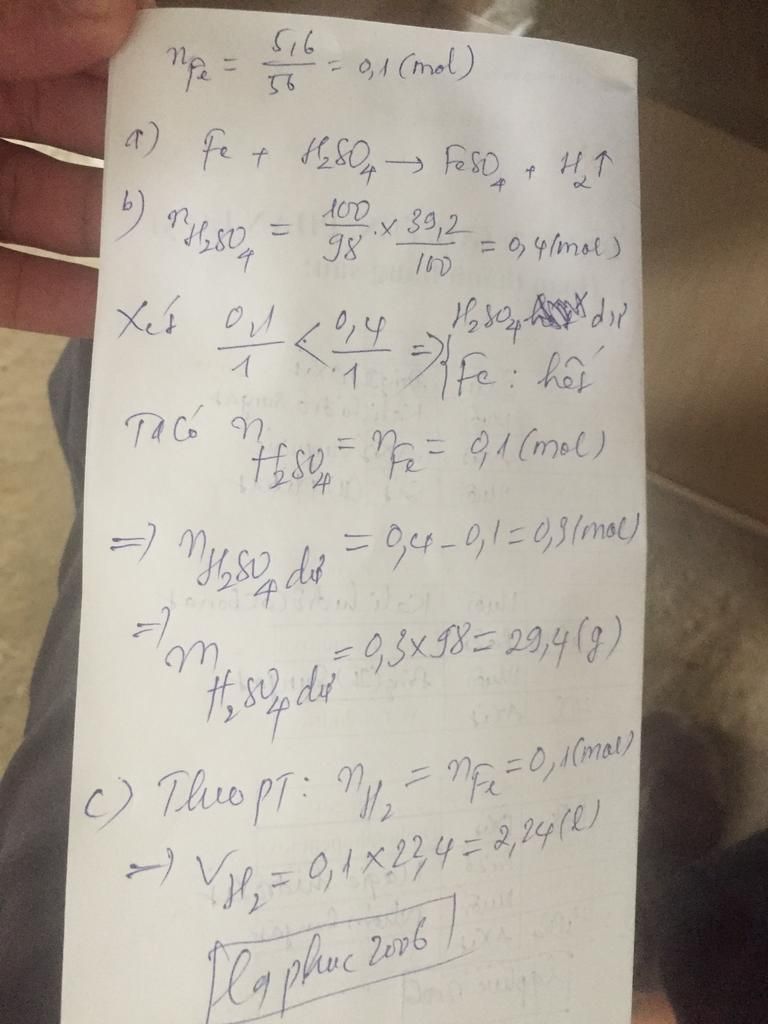 nFe = 5,6/56 = 0,1 (mol)
a) Fe + H2SO4 → FeSO4 + H2↑
b) nH2SO4 = 100/98 × 39,2/100 = 0,4 (mol)
Xét 0,1/1 < 0,4/1 => { H2SO4 dư
Fe : hết
Ta có nH2SO4 = nFe = 0,1 (mol)
=> nH2SO4 dư = 0,4 - 0,1 = 0,3 (mol)
=> mH2SO4 dư = 0,3 × 98 = 29,4 (g)
c) Theo PT: nH2 = nFe = 0,1 (mol)
=> VH2 = 0,1 × 22,4 = 2,24 (l)
2006